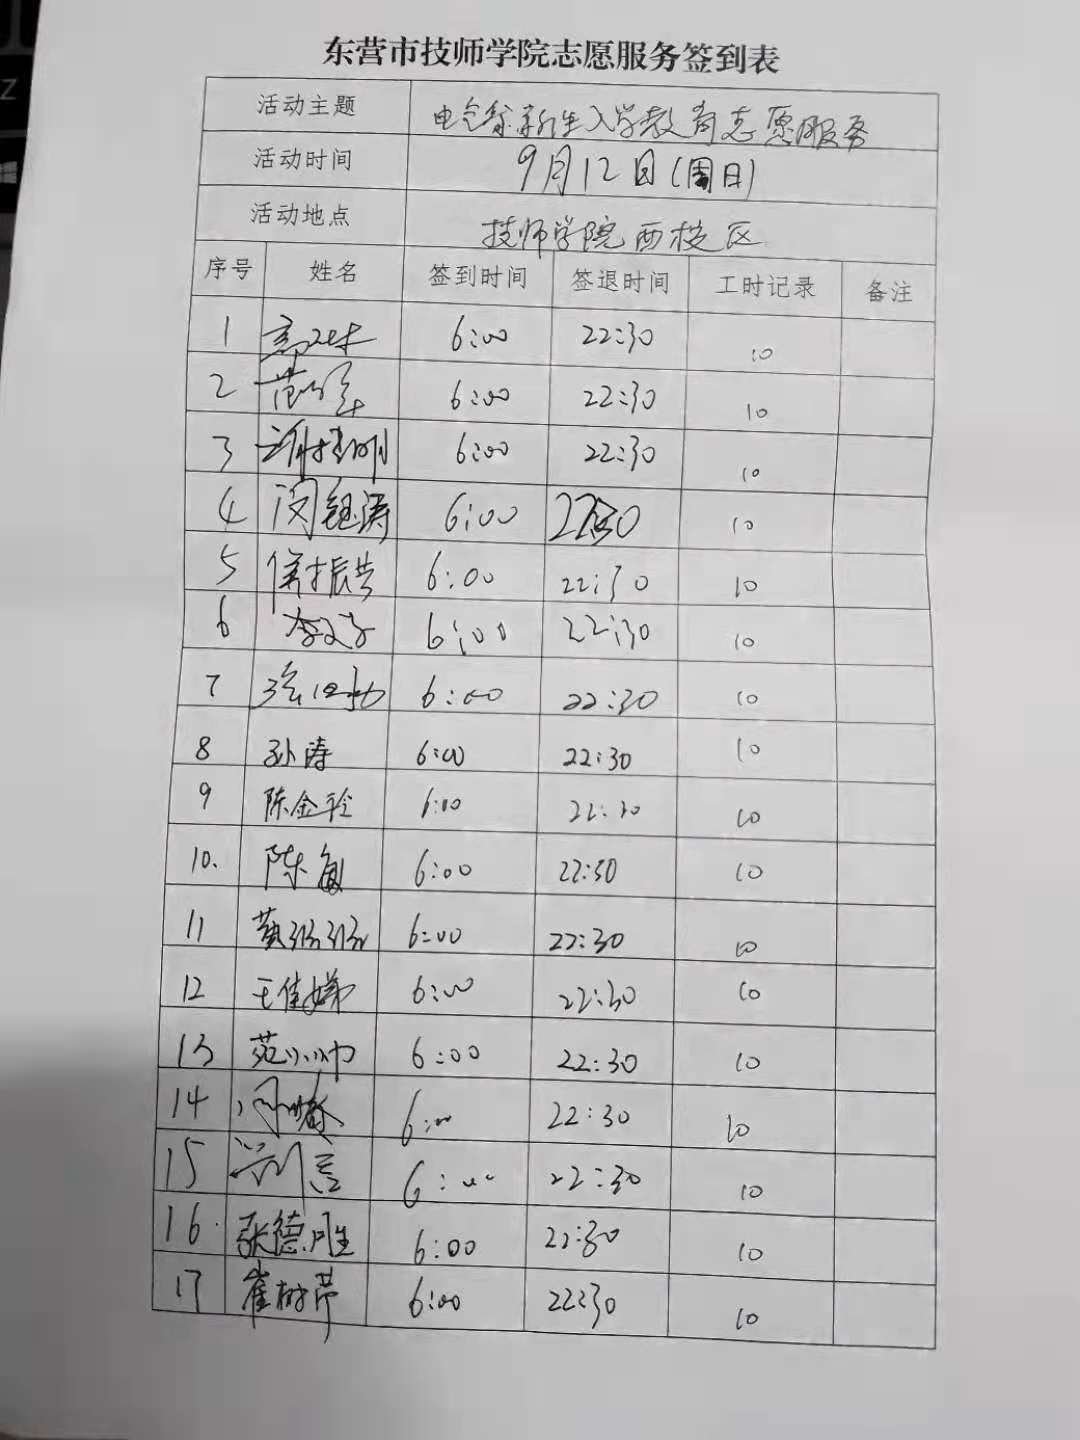 Z
东营市技师学院志愿服务签到表
活动主题 新生入学教育志愿服务
活动时间 9月12日(周日)
活动地点 技师学院西校区
序号 姓名 签到时间 签退时间 工时记录 备注
1 6:00 22:30 10
2 6:00 22:30 10
3 6:00 22:30 10
4 闵钰涛 6:00 22:30 10
5 侯振兴 6:00 22:30 10
6 李文子 6:00 22:30 10
7 6:00 22:30 10
8 孙涛 6:00 22:30 10
9 陈金玲 6:00 22:30 10
10. 陈敏 6:00 22:30 10
11 6:00 22:30 10
12 王佳娣 6:00 22:30 10
13 6:00 22:30 10
14 6:00 22:30 10
15 6:00 22:30 10
16. 张德胜 6:00 22:30 10
17 崔树芹 6:00 22:30 10